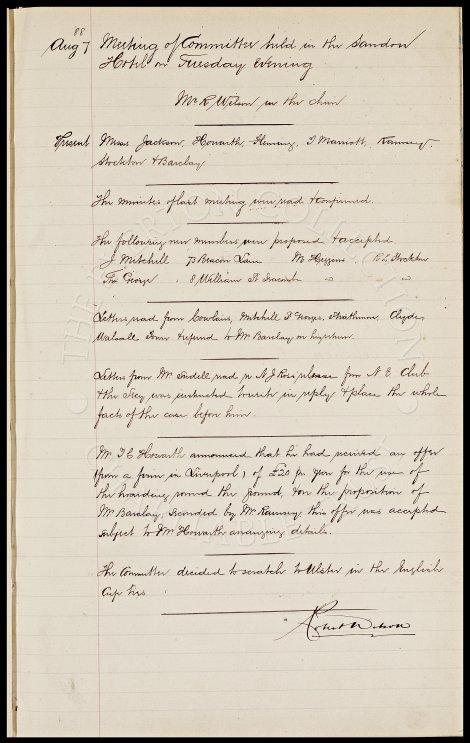 88
Aug 7 Meeting of Committee held in the Sandon
Hotel on Tuesday Evening
Mr R Wilson in the chair
Present Messrs Jackson, Howarth, Fleming, J Marriott, Ramsay,
Stockton & Barclay
The minutes of last meeting were read & confirmed.
The following new members were proposed & accepted
J Mitchell 73 Beacon Lane Mr Higgins R L Stockton
Thos George 8 William St " "
Letters read from Cowlairs, Mitchell St George, Strathmore, Clyde,
Walsall Town & refund to Mr Barclay
Letters from Mr Tindell read re N J Ross release from N E Club
& the Secy was instructed to write in reply & place the whole
facts of the case before him.
Mr T E Howarth announced that he had received an offer
from a firm in Liverpool, of £20 per year for the use of
the hoarding round the ground, & on the proposition of
Mr Barclay, seconded by Mr Ramsay this offer was accepted
subject to Mr Howarth arranging details.
The Committee decided to scratch to Ulster in the English
Cup ties
Robert Wilson